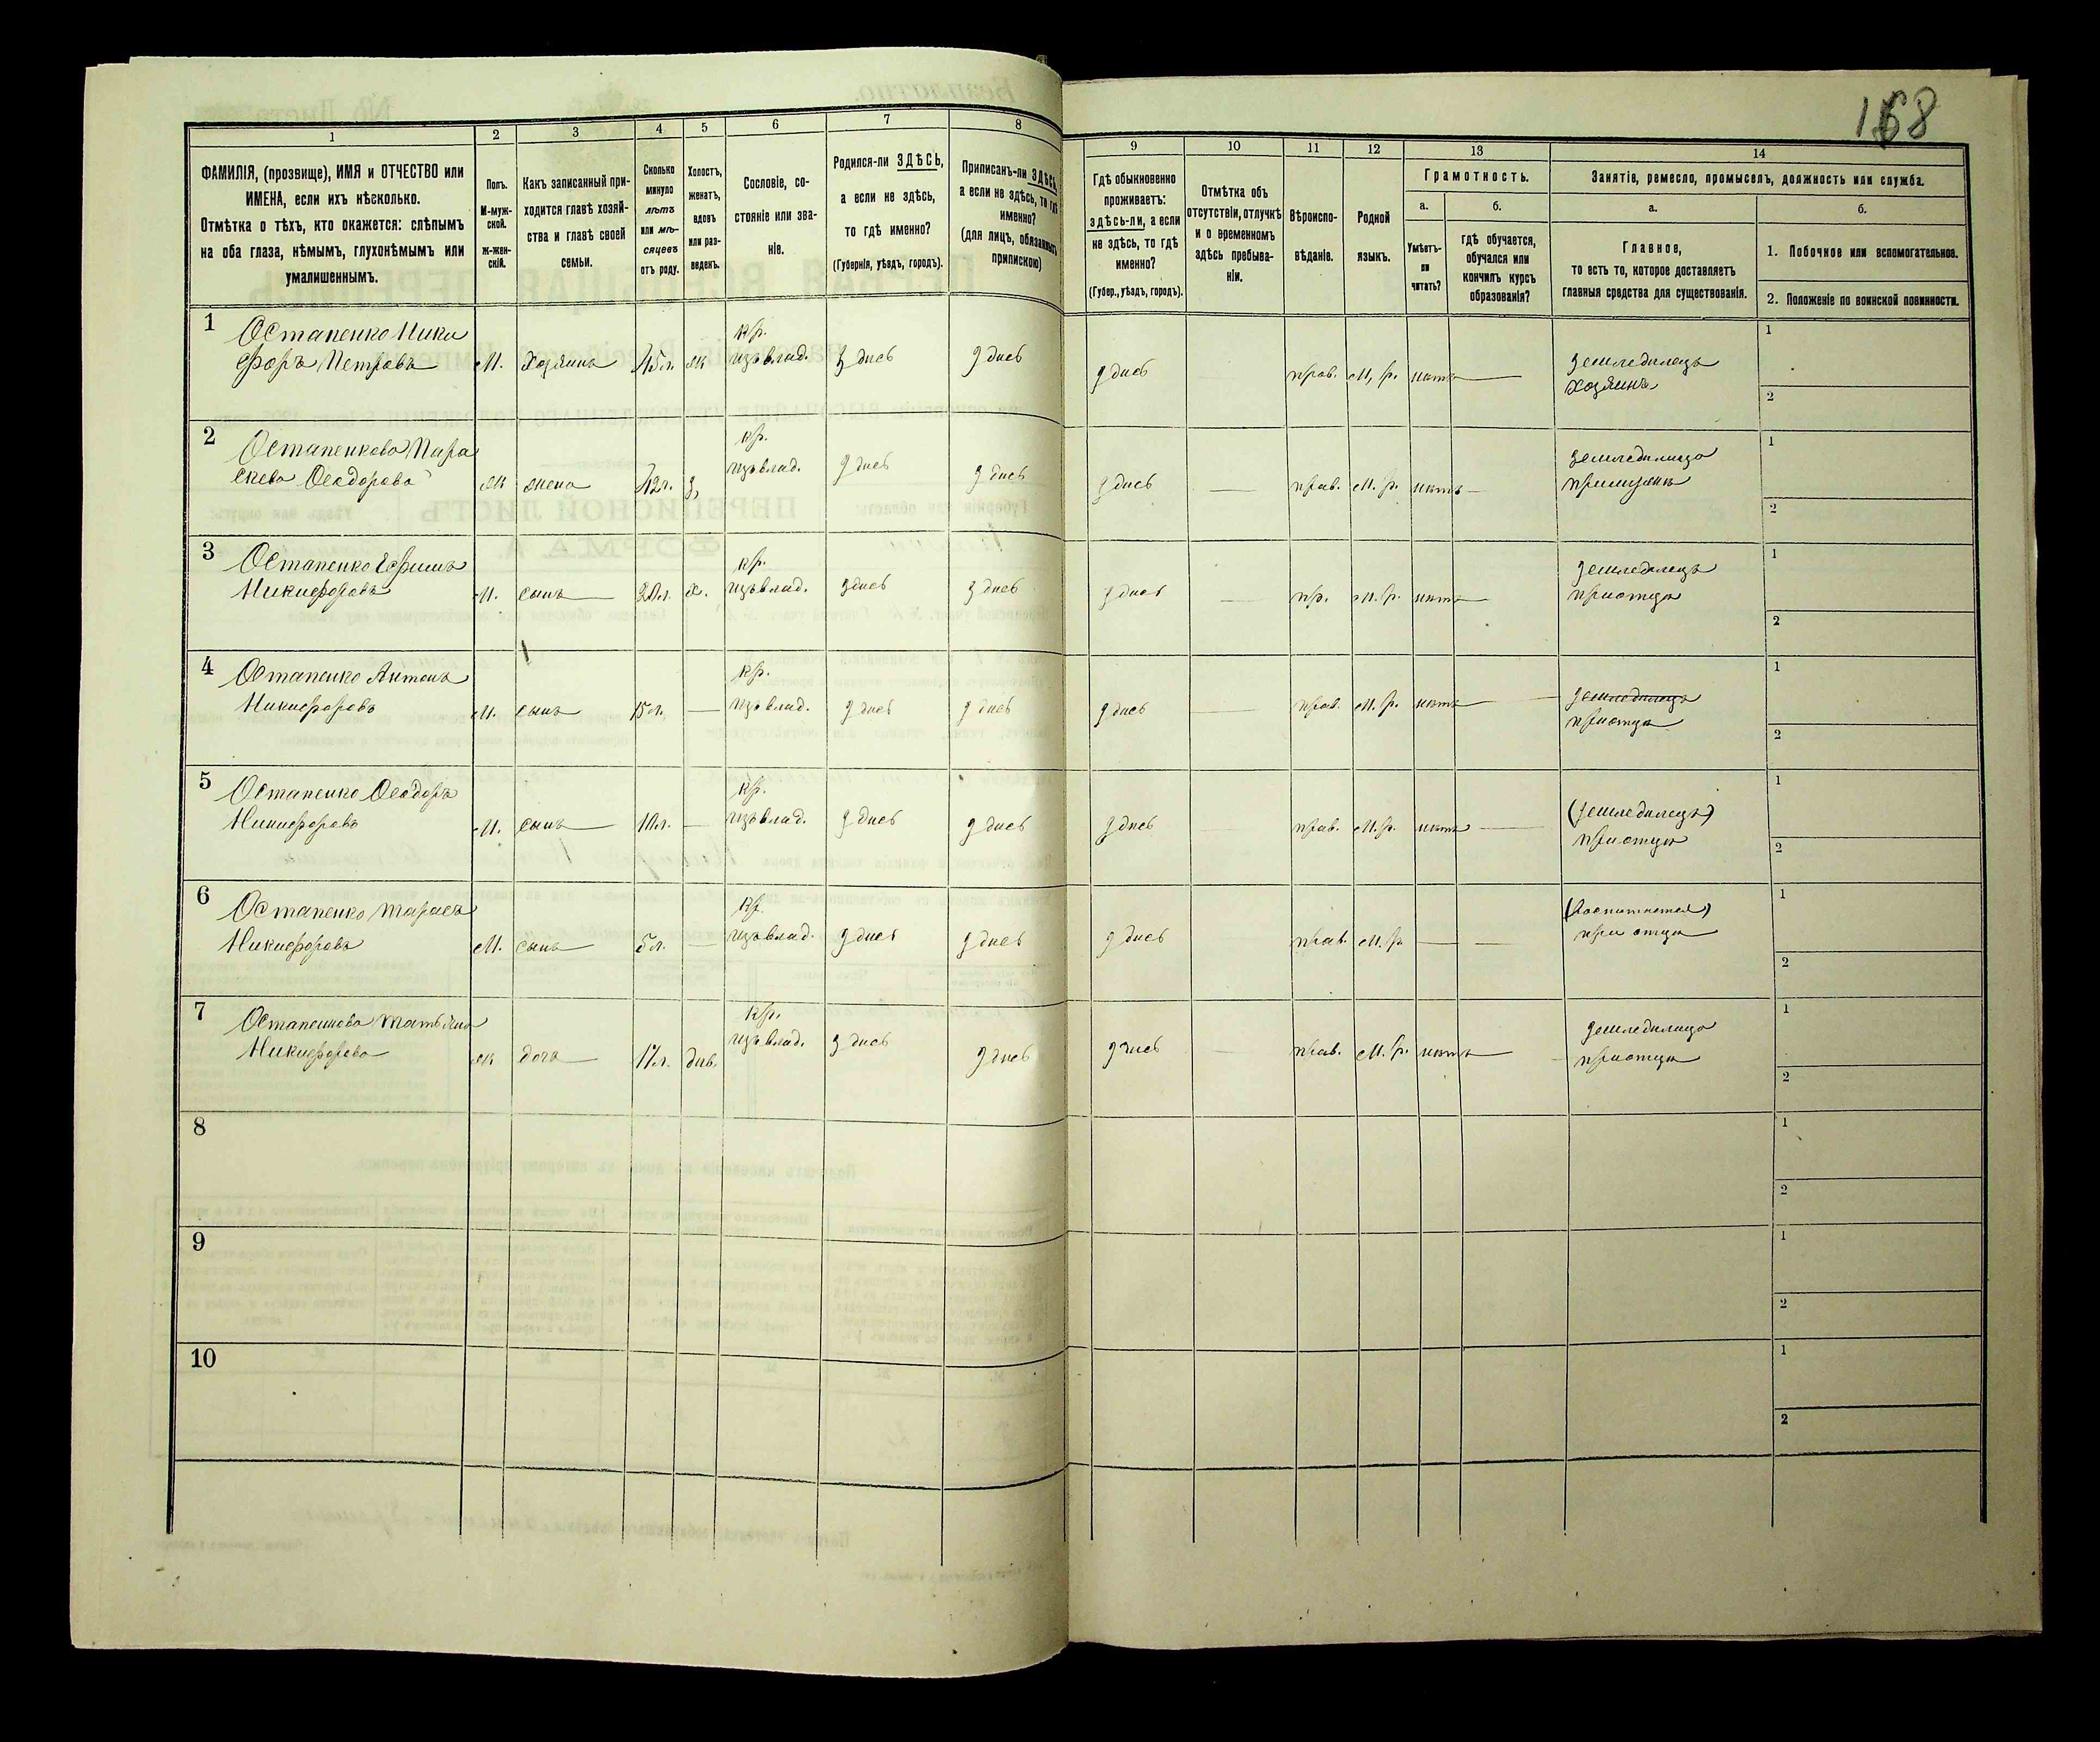 168
1 2 3 4 5 6 7 8 9 10 11 12 13 14
ФАМИЛІЯ, (прозвище), ИМЯ и ОТЧЕСТВО или
ИМЕНА, если ихъ нѣсколько.
Отмѣтка о тѣхъ, кто окажется: слѣпымъ
на оба глаза, нѣмымъ, глухонѣмымъ или
умалишеннымъ.
Полъ.
М-муж-
ской.
Ж-жен-
скій.
Какъ записанный при-
ходится главѣ хозяй-
ства и главѣ своей
семьи.
Сколько
минуло
лѣтъ
или мѣ-
сяцевъ
отъ роду.
Холостъ,
женатъ,
вдовъ
или раз-
веденъ.
Сословіе, со-
стояніе или зва-
ніе.
Родился-ли ЗДѢСЬ,
а если не здѣсь,
то гдѣ именно?
(Губернія, уѣздъ, городъ).
Приписанъ-ли ЗДѢСЬ,
а если не здѣсь, то гдѣ
именно?
(для лицъ, обязанныхъ
припискою)
Гдѣ обыкновенно
проживаетъ:
здѣсь-ли, а если
не здѣсь, то гдѣ
именно?
(Губер., уѣздъ, городъ).
Отмѣтка объ
отсутствіи, отлучкѣ
и о временномъ
здѣсь пребыва-
ніи.
Вѣроиспо-
вѣданіе.
Родной
языкъ.
Грамотность.
а.
Умѣетъ-
ли
читать?
б.
гдѣ обучается,
обучался или
кончилъ курсъ
образованія?
Занятіе, ремесло, промыселъ, должность или служба.
а.
Главное,
то есть то, которое доставляетъ
главныя средства для существованія.
б.
1. Побочное или вспомогательное.
2. Положеніе по воинской повинности.
1 Остапенко Ники
форъ Петровъ М. Хозяинъ 45 л. ж кр. изъ влад. здѣсь здѣсь здѣсь прав. М. р. нѣтъ земледѣлецъ
хозяинъ
1
2
2 Остапенкова Пара
скева Ѳеодорова ж жена 42 л. з. кр. изъ влад. здѣсь здѣсь здѣсь — прав. М. р. нѣтъ — земледѣлица
при мужѣ
1
2
3 Остапенко Ефимъ
Никифоровъ М. сынъ 20 л. х. кр. изъ влад. здѣсь здѣсь здѣсь — пр. М. р. нѣтъ — земледѣлецъ
при отцѣ
1
2
4 Остапенко Антонъ
Никифоровъ М. сынъ 15 л. — кр. изъ влад. здѣсь здѣсь здѣсь — прав. М. р. нѣтъ — земледѣлецъ
при отцѣ
1
2
5 Остапенко Ѳеодоръ
Никифоровъ М. сынъ 10 л. — кр. изъ влад. здѣсь здѣсь здѣсь — прав. М. р. нѣтъ — (земледѣлецъ)
при отцѣ
1
2
6 Остапенко Тарасъ
Никифоровъ М. сынъ 5 л. — кр. изъ влад. здѣсь здѣсь здѣсь прав. М. р. — — при отцѣ
1
2
7 Остапенкова Татьяна
Никифорова ж дочь 17 л. дѣв. кр. изъ влад. здѣсь здѣсь здѣсь — прав. М. р. нѣтъ — земледѣлица
при отцѣ
1
2
8
1
2
9
1
2
10
1
2